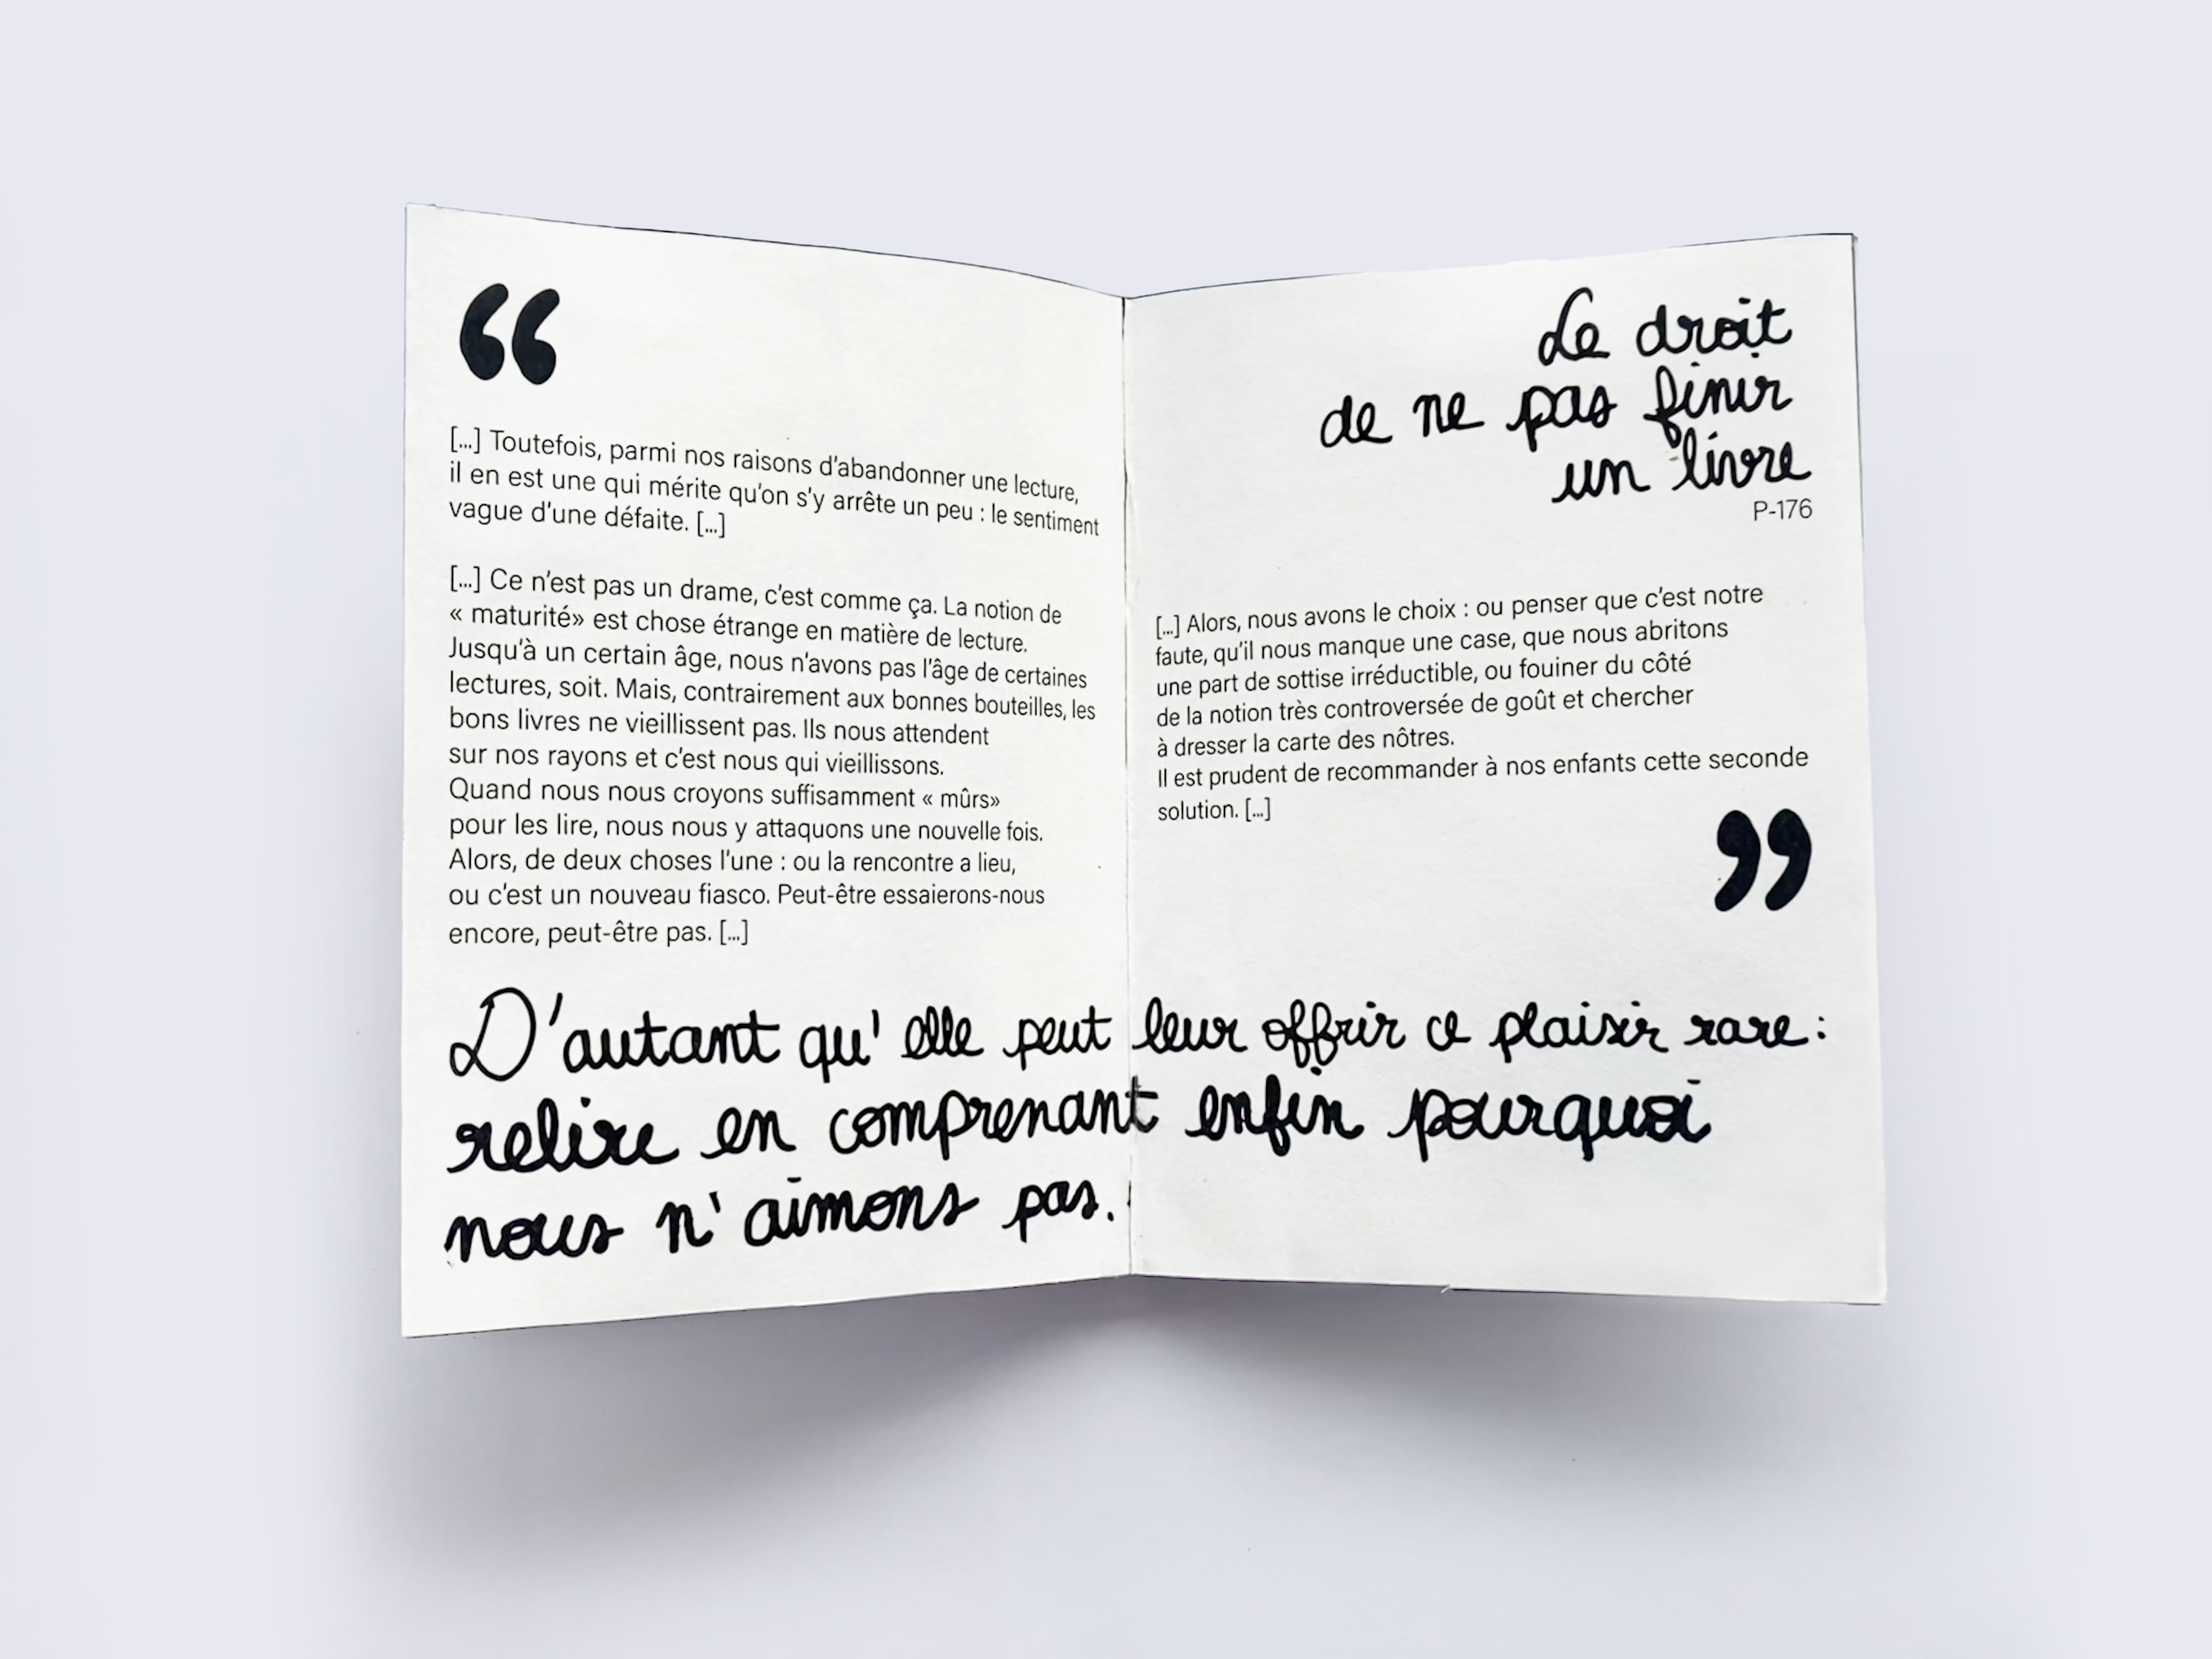 “
[...] Toutefois, parmi nos raisons d'abandonner une lecture,
il en est une qui mérite qu'on s'y arrête un peu : le sentiment
vague d'une défaite. [...]
[...] Ce n'est pas un drame, c'est comme ça. La notion de
« maturité» est chose étrange en matière de lecture.
Jusqu'à un certain âge, nous n'avons pas l'âge de certaines
lectures, soit. Mais, contrairement aux bonnes bouteilles, les
bons livres ne vieillissent pas. Ils nous attendent
sur nos rayons et c'est nous qui vieillissons.
Quand nous nous croyons suffisamment « mûrs»
pour les lire, nous nous y attaquons une nouvelle fois.
Alors, de deux choses l'une : ou la rencontre a lieu,
ou c'est un nouveau fiasco. Peut-être essaierons-nous
encore, peut-être pas. [...]
Le droit
de ne pas finir
un livre
P-176
[...] Alors, nous avons le choix : ou penser que c'est notre
faute, qu'il nous manque une case, que nous abritons
une part de sottise irréductible, ou fouiner du côté
de la notion très controversée de goût et chercher
à dresser la carte des nôtres.
Il est prudent de recommander à nos enfants cette seconde
solution. [...]
”
D'autant qu'elle peut leur offrir ce plaisir rare :
relire en comprenant enfin pourquoi
nous n'aimons pas.